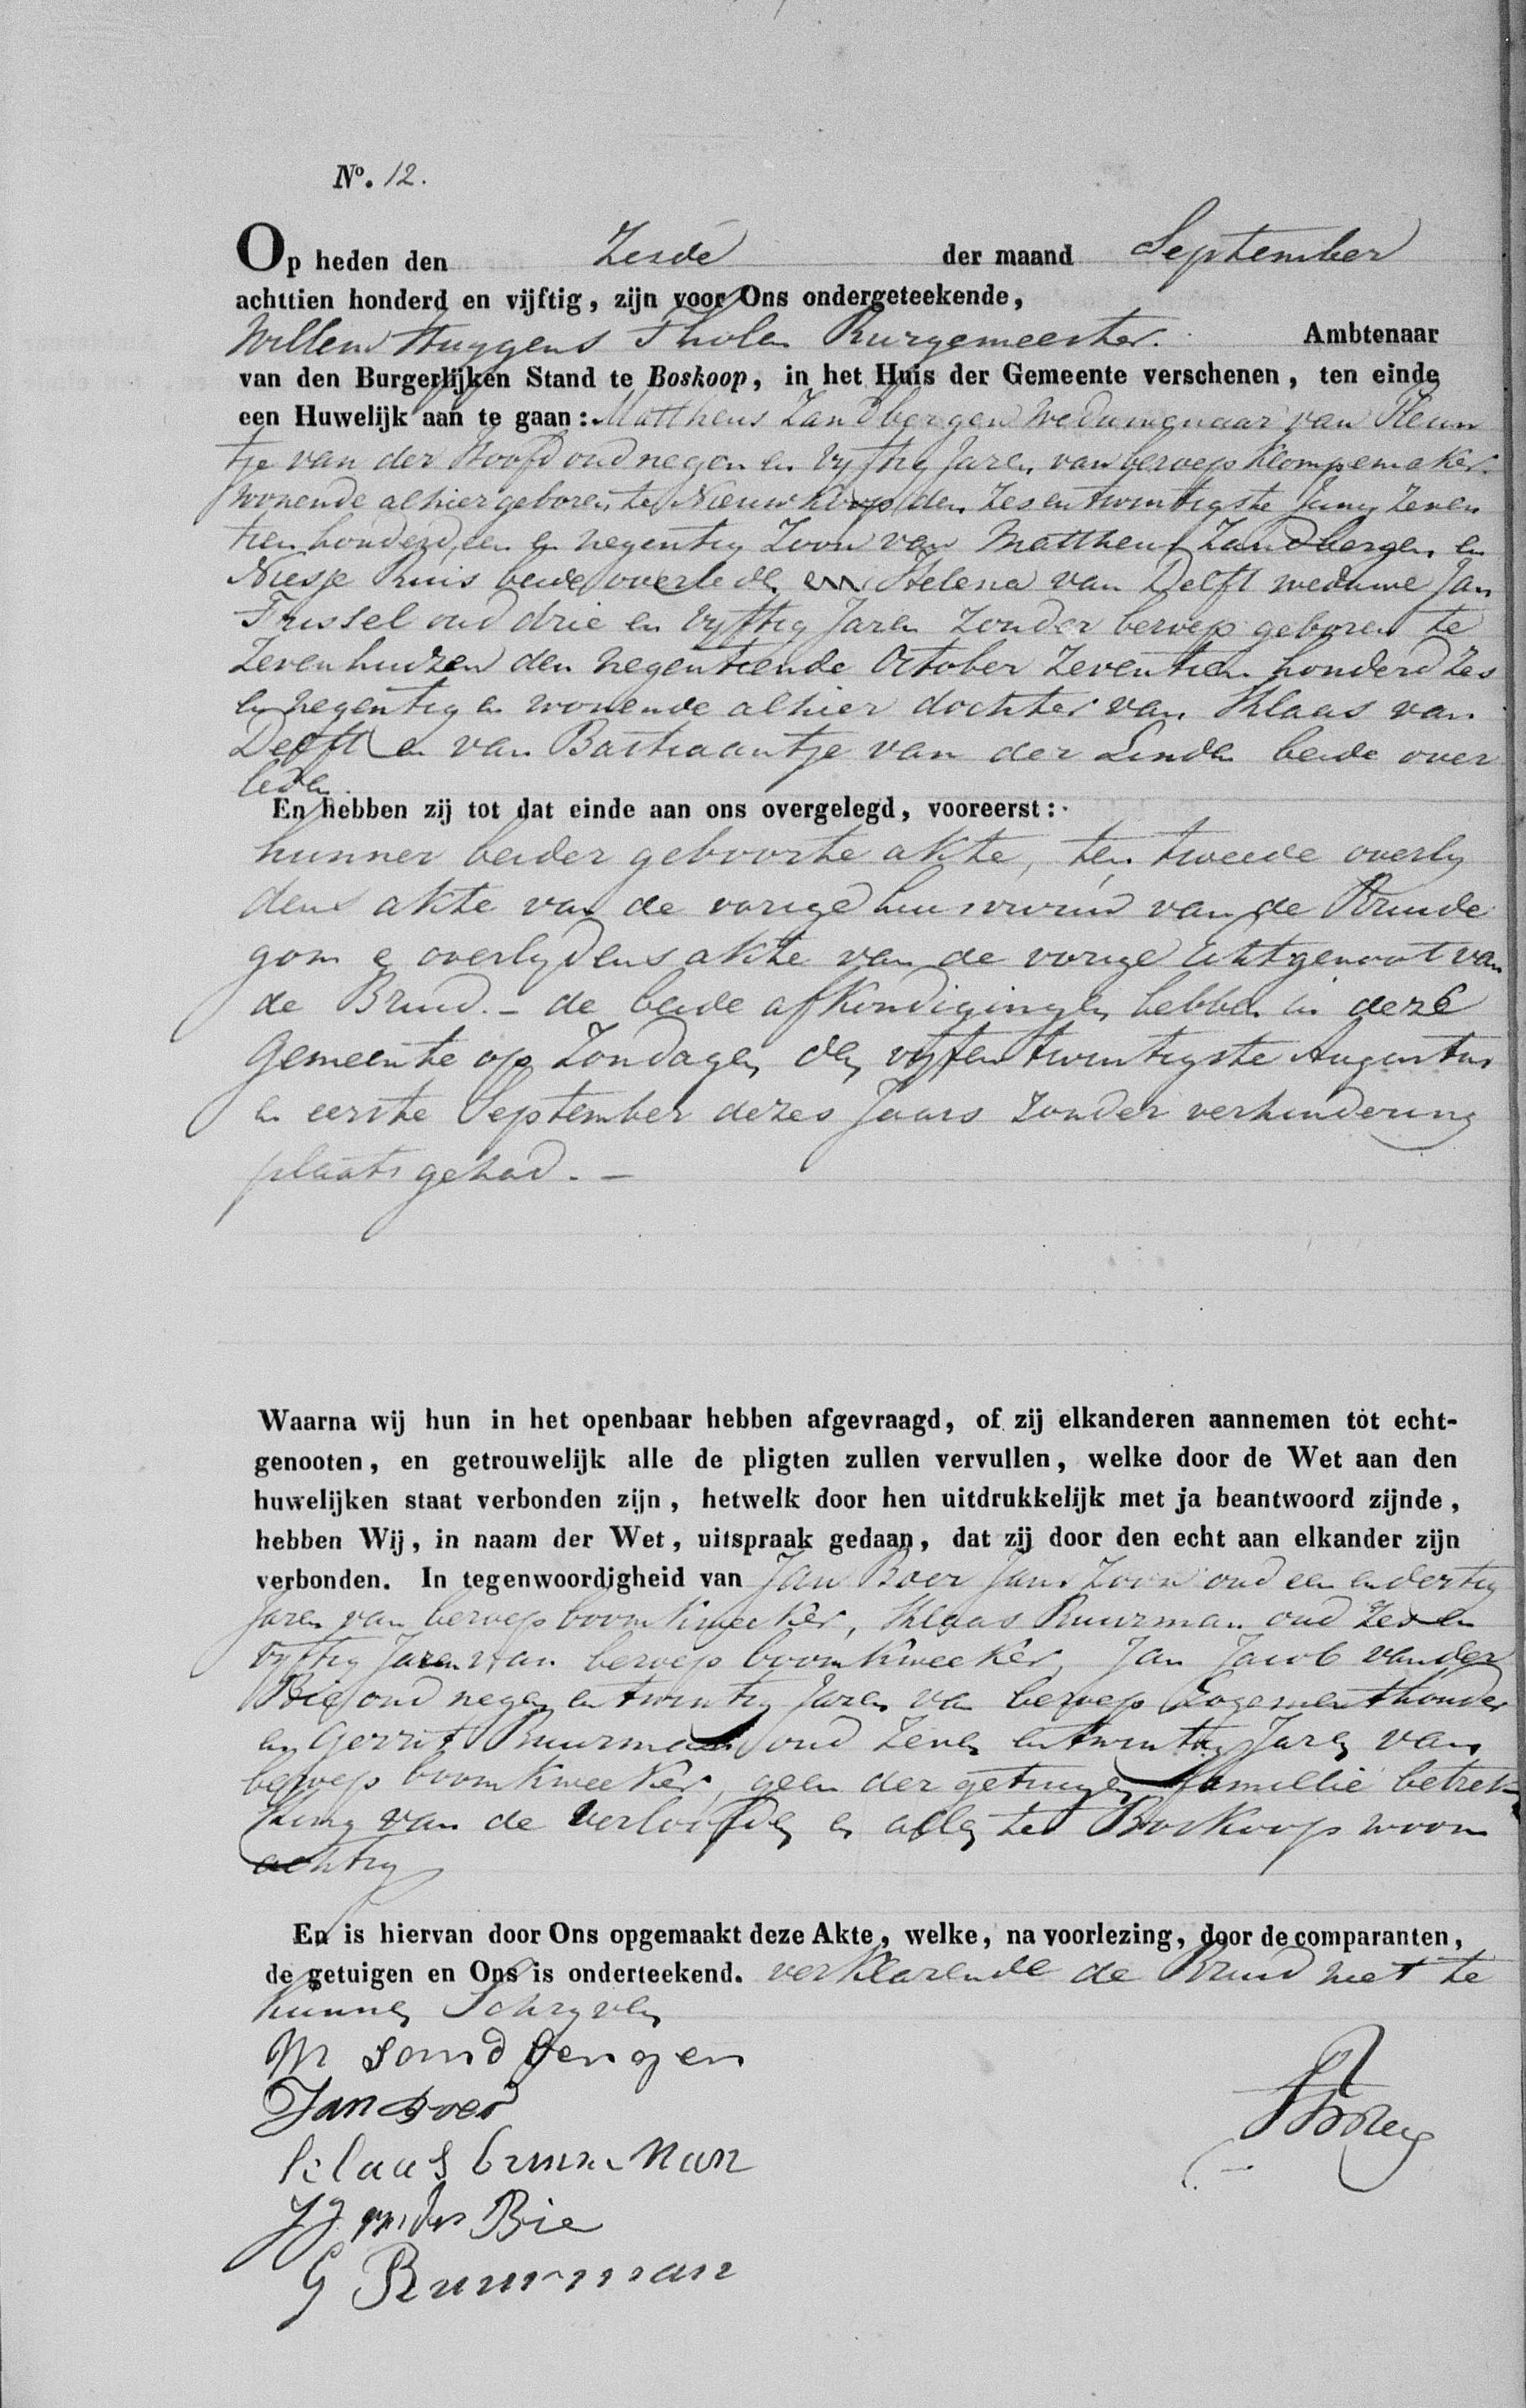 No. 12.
Op heden den Zesde der maand September
achttien honderd en vijftig, zijn voor Ons ondergeteekende,
Willem Huggens Tholen Burgemeester. Ambtenaar
van den Burgerlijken Stand te Boskoop, in het Huis der Gemeente verschenen, ten einde
een Huwelijk aan te gaan: Mattheus Zandbergen Weduwenaar van Pleun
tje van der Hoofd oud negen en vyftig Jaren van beroep Klompemaker
wonende alhier geboren te Nieuwkoop den Zesentwintigste Juny Zeven
tien honderd een en negentig Zoon van Mattheus Zandbergen en
Niesje Buis beide overleden en Helena van Delft weduwe Jan
Trissel oud drie en vyftig Jaren Zonder beroep geboren te
Zevenhuizen den negentiende October Zeventien honderd Zes
en negentig en wonende alhier dochter van Klaas van
Delft en van Bastiaantje van der Linden beide over
leden.
En hebben zij tot dat einde aan ons overgelegd, vooreerst:
hunner beider geboorte akte, ten tweede overly
dens akte van de vorige huisvrouw van de Bruide
gom en overlydens akte van de vorige echtgenoot van
de Bruid. – de beide afkondigingen hebben in deze
Gemeente op Zondagen den vyfentwintigste Augustus
en eerste September dezes Jaars Zonder verhindering
plaats gehad. –
Waarna wij hun in het openbaar hebben afgevraagd, of zij elkanderen aannemen tot echt-
genooten, en getrouwelijk alle de pligten zullen vervullen, welke door de Wet aan den
huwelijken staat verbonden zijn, hetwelk door hen uitdrukkelijk met ja beantwoord zijnde,
hebben Wij, in naam der Wet, uitspraak gedaan, dat zij door den echt aan elkander zijn
verbonden. In tegenwoordigheid van Jan Boer Jans Zoon oud een en dertig
Jaren van beroep boomkweeker, Klaas Buurman oud Zes en
vyftig Jaren van beroep boomkweeker, Jan Jacob van der
Bie oud negen en twintig Jaren van beroep Logementhouder
en Gerrit Buurman oud Zeven en twintig Jaren van
beroep boomkweeker, geen der getuigen famillie betrek
king van de verloofden en allen te Boskoop woon
achtig
En is hiervan door Ons opgemaakt deze Akte, welke, na voorlezing, door de comparanten,
de getuigen en Ons is onderteekend. verklarende de Bruid niet te
kunnen Schryven
M Sandbergen
Jan Boer
Klaas buurman
JJ van der Bie
G Buurman
Tholen